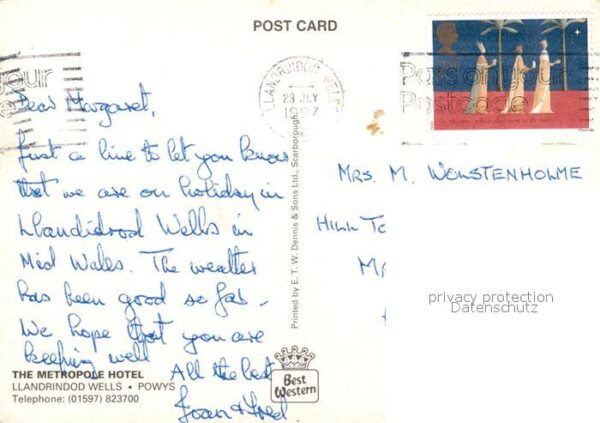 POST CARD
LLANDRINDOD WELLS
29 JLY
1997
Pass on your
Postcode
Dear Margaret,
Just a line to let you know
that we are on holiday in
Llandidrod Wells in
Mid Wales. The weather
has been good so far -
We hope that you are
keeping well
All the best
Joan & Fred
MRS. M. WOLSTENHOLME
HILL TO
MA
privacy protection
Datenschutz
Printed by E. T. W. Dennis & Sons Ltd., Scarborough
THE METROPOLE HOTEL
LLANDRINDOD WELLS • POWYS
Telephone: (01597) 823700
Best
Western